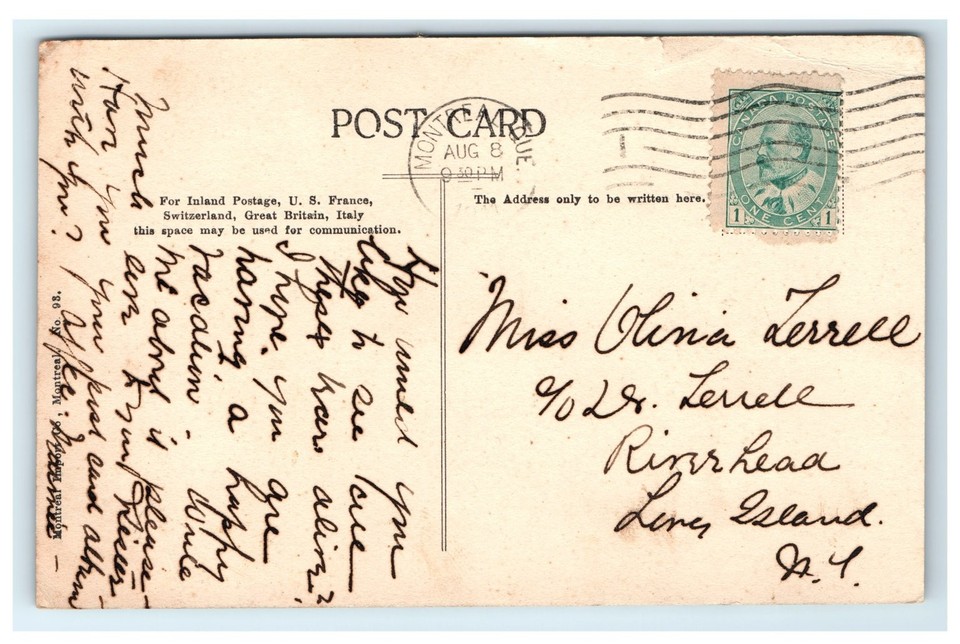 POST CARD
MONTREAL QUE.
AUG 8
9 30 PM
CANADA POSTAGE
1 ONE CENT 1
For Inland Postage, U. S. France,
Switzerland, Great Britain, Italy
this space may be used for communication.
The Address only to be written here.
How would you
like to see
these bears alive?
I hope you are
having a happy
vacation. Write
me about it please
love
much
Have you your post card album
with you?
Miss Olivia Terrell
c/o Dr. Terrell
Riverhead
Long Island.
N. Y.
Montreal Import Co., Montreal, No. 93.